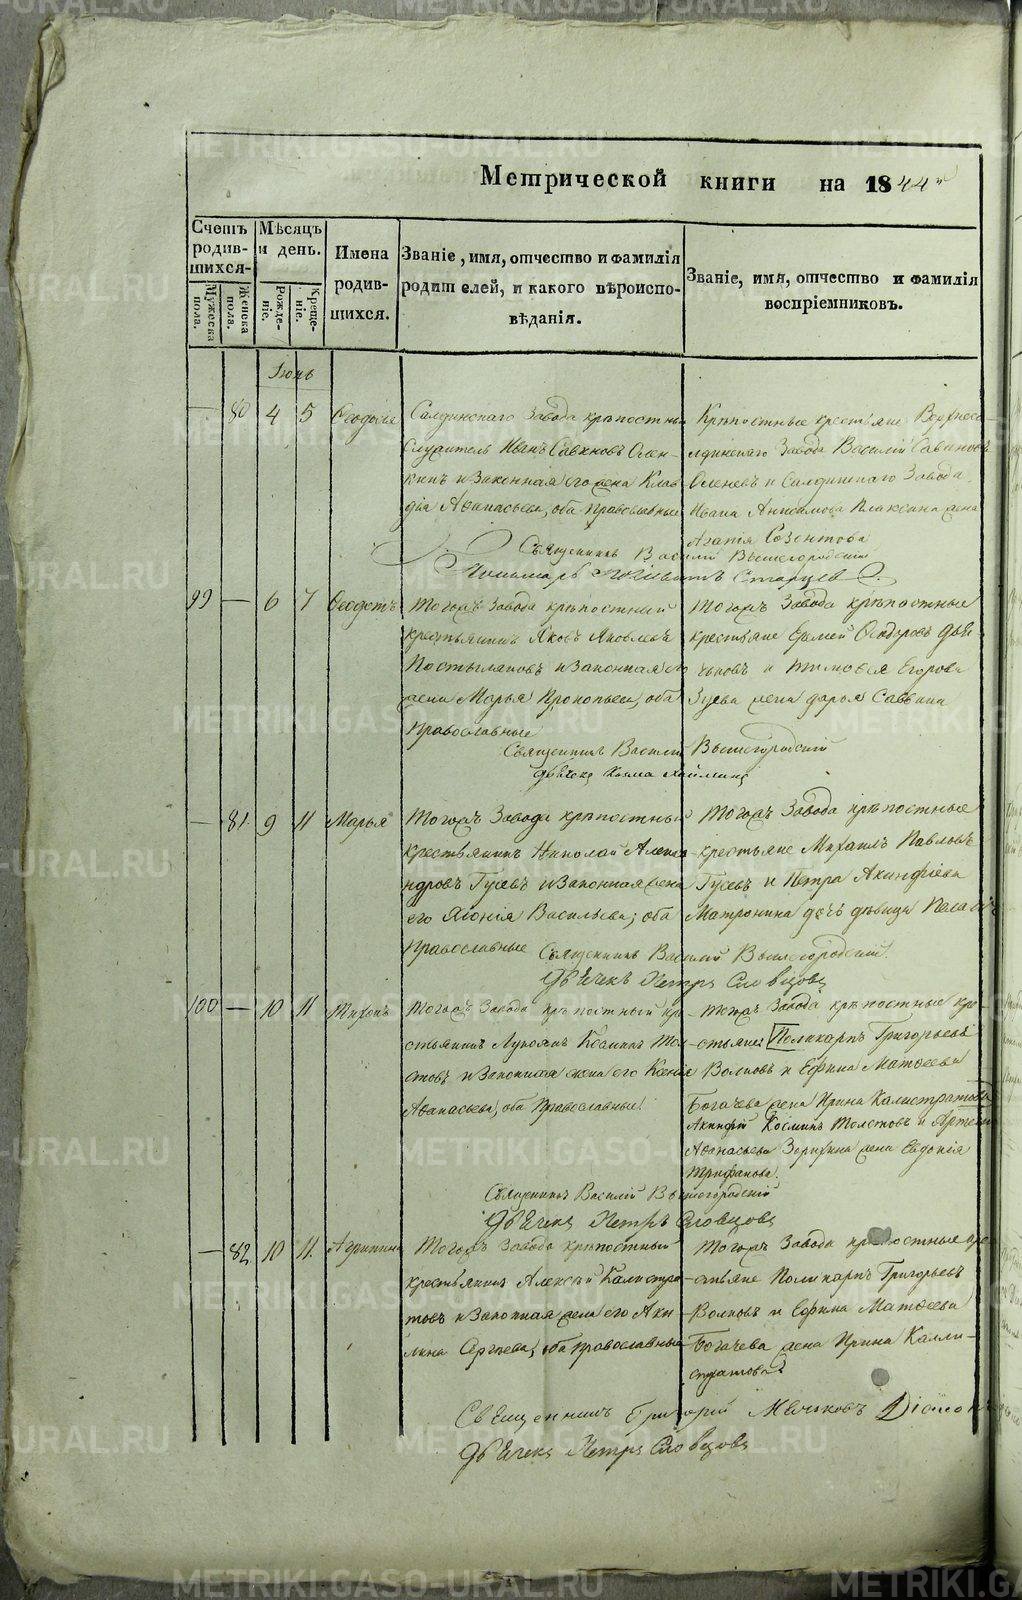 Метрической книги на 1844й
Счетъ родив-шихся.
Мѣсяцъ и день.
Имена родив-шихся.
Званіе, имя, отчество и фамилія родителей, и какого вѣроиспо-вѣданія.
Званіе, имя, отчество и фамилія воспріемниковъ.
Мужеска пола.
Женска пола.
Рожде-ніе.
Креще-ніе.
Іюнь
— 80 4 5 Ѳеодосія
Салдинскаго Завода крѣпостный
служитель Иванъ Саввиновъ Олен-
жена Клав-
дія Аѳанасьева, оба Православные
Крѣпостные крестьяне Верхнеса-
лдинскаго Завода Василій Саввиновъ
Оленевъ и Салдинскаго Завода
Ивана Анисимова Плаксина жена
Агаѳія Созонтова
Священникъ Василій Вышегородскій
Пономарь Старцевъ
99 — 6 7 Ѳеодотъ
Тогожъ Завода крѣпостный
крестьянинъ Яковъ Яковлевъ
Постыляковъ и Законная его
жена Марья Прокопьева, оба
Православные
Тогожъ Завода крѣпостные
крестьяне Ермей Ѳедоровъ Дья-
чковъ и Тимоѳея Егорова
Зуева жена Дарья Саввина
Священникъ Василій Вышегородскій
дьячекъ Козма
— 81. 9 11 Марья
Тогожъ Завода крѣпостный
крестьянинъ Николай Алекса-
ндровъ Гусевъ и Законная жена
его Васильева; оба
Православные
Тогожъ Завода крѣпостные
крестьяне Михаилъ Павловъ
Гусевъ и Петра Акинфіева
Матронина дочь дѣвица Пелагія
Священникъ Василій Вышегородскій.
Дьячекъ Петръ Словцовъ
100 — 10 11 Тихонъ
Тогожъ Завода крѣпостный кре-
стьянинъ Лукоянъ Козминъ Тол-
стовъ и Законная жена его Ксенія
Аѳанасьева, оба Православные.
Тогожъ Завода крѣпостные кре-
стьяне: Поликарпъ Григорьевъ
Волковъ и Ефима Матѳеева
Богачева жена Ирина Калистратова
Акинфій Козминъ Толстовъ и Артемія
Аѳанасьева Зорихина жена Евдокія
Трифанова.
Священникъ Василій Вышегородскій
Дьячекъ Петръ Словцовъ
— 82 10 11. Агрипина
Тогожъ Завода крѣпостный
крестьянинъ Алексѣй Калистра-
товъ и Законная жена его Аку-
лина Сергѣева, оба православные
Тогожъ Завода крѣпостные кре-
стьяне Поликарпъ Григорьевъ
Волковъ и Ефима Матѳеева
Богачева жена Ирина Калли-
стратова
Священникъ Григорій Мячковъ Діаконъ
Дьячекъ Петръ Словцовъ
METRIKI.GASO-URAL.RU